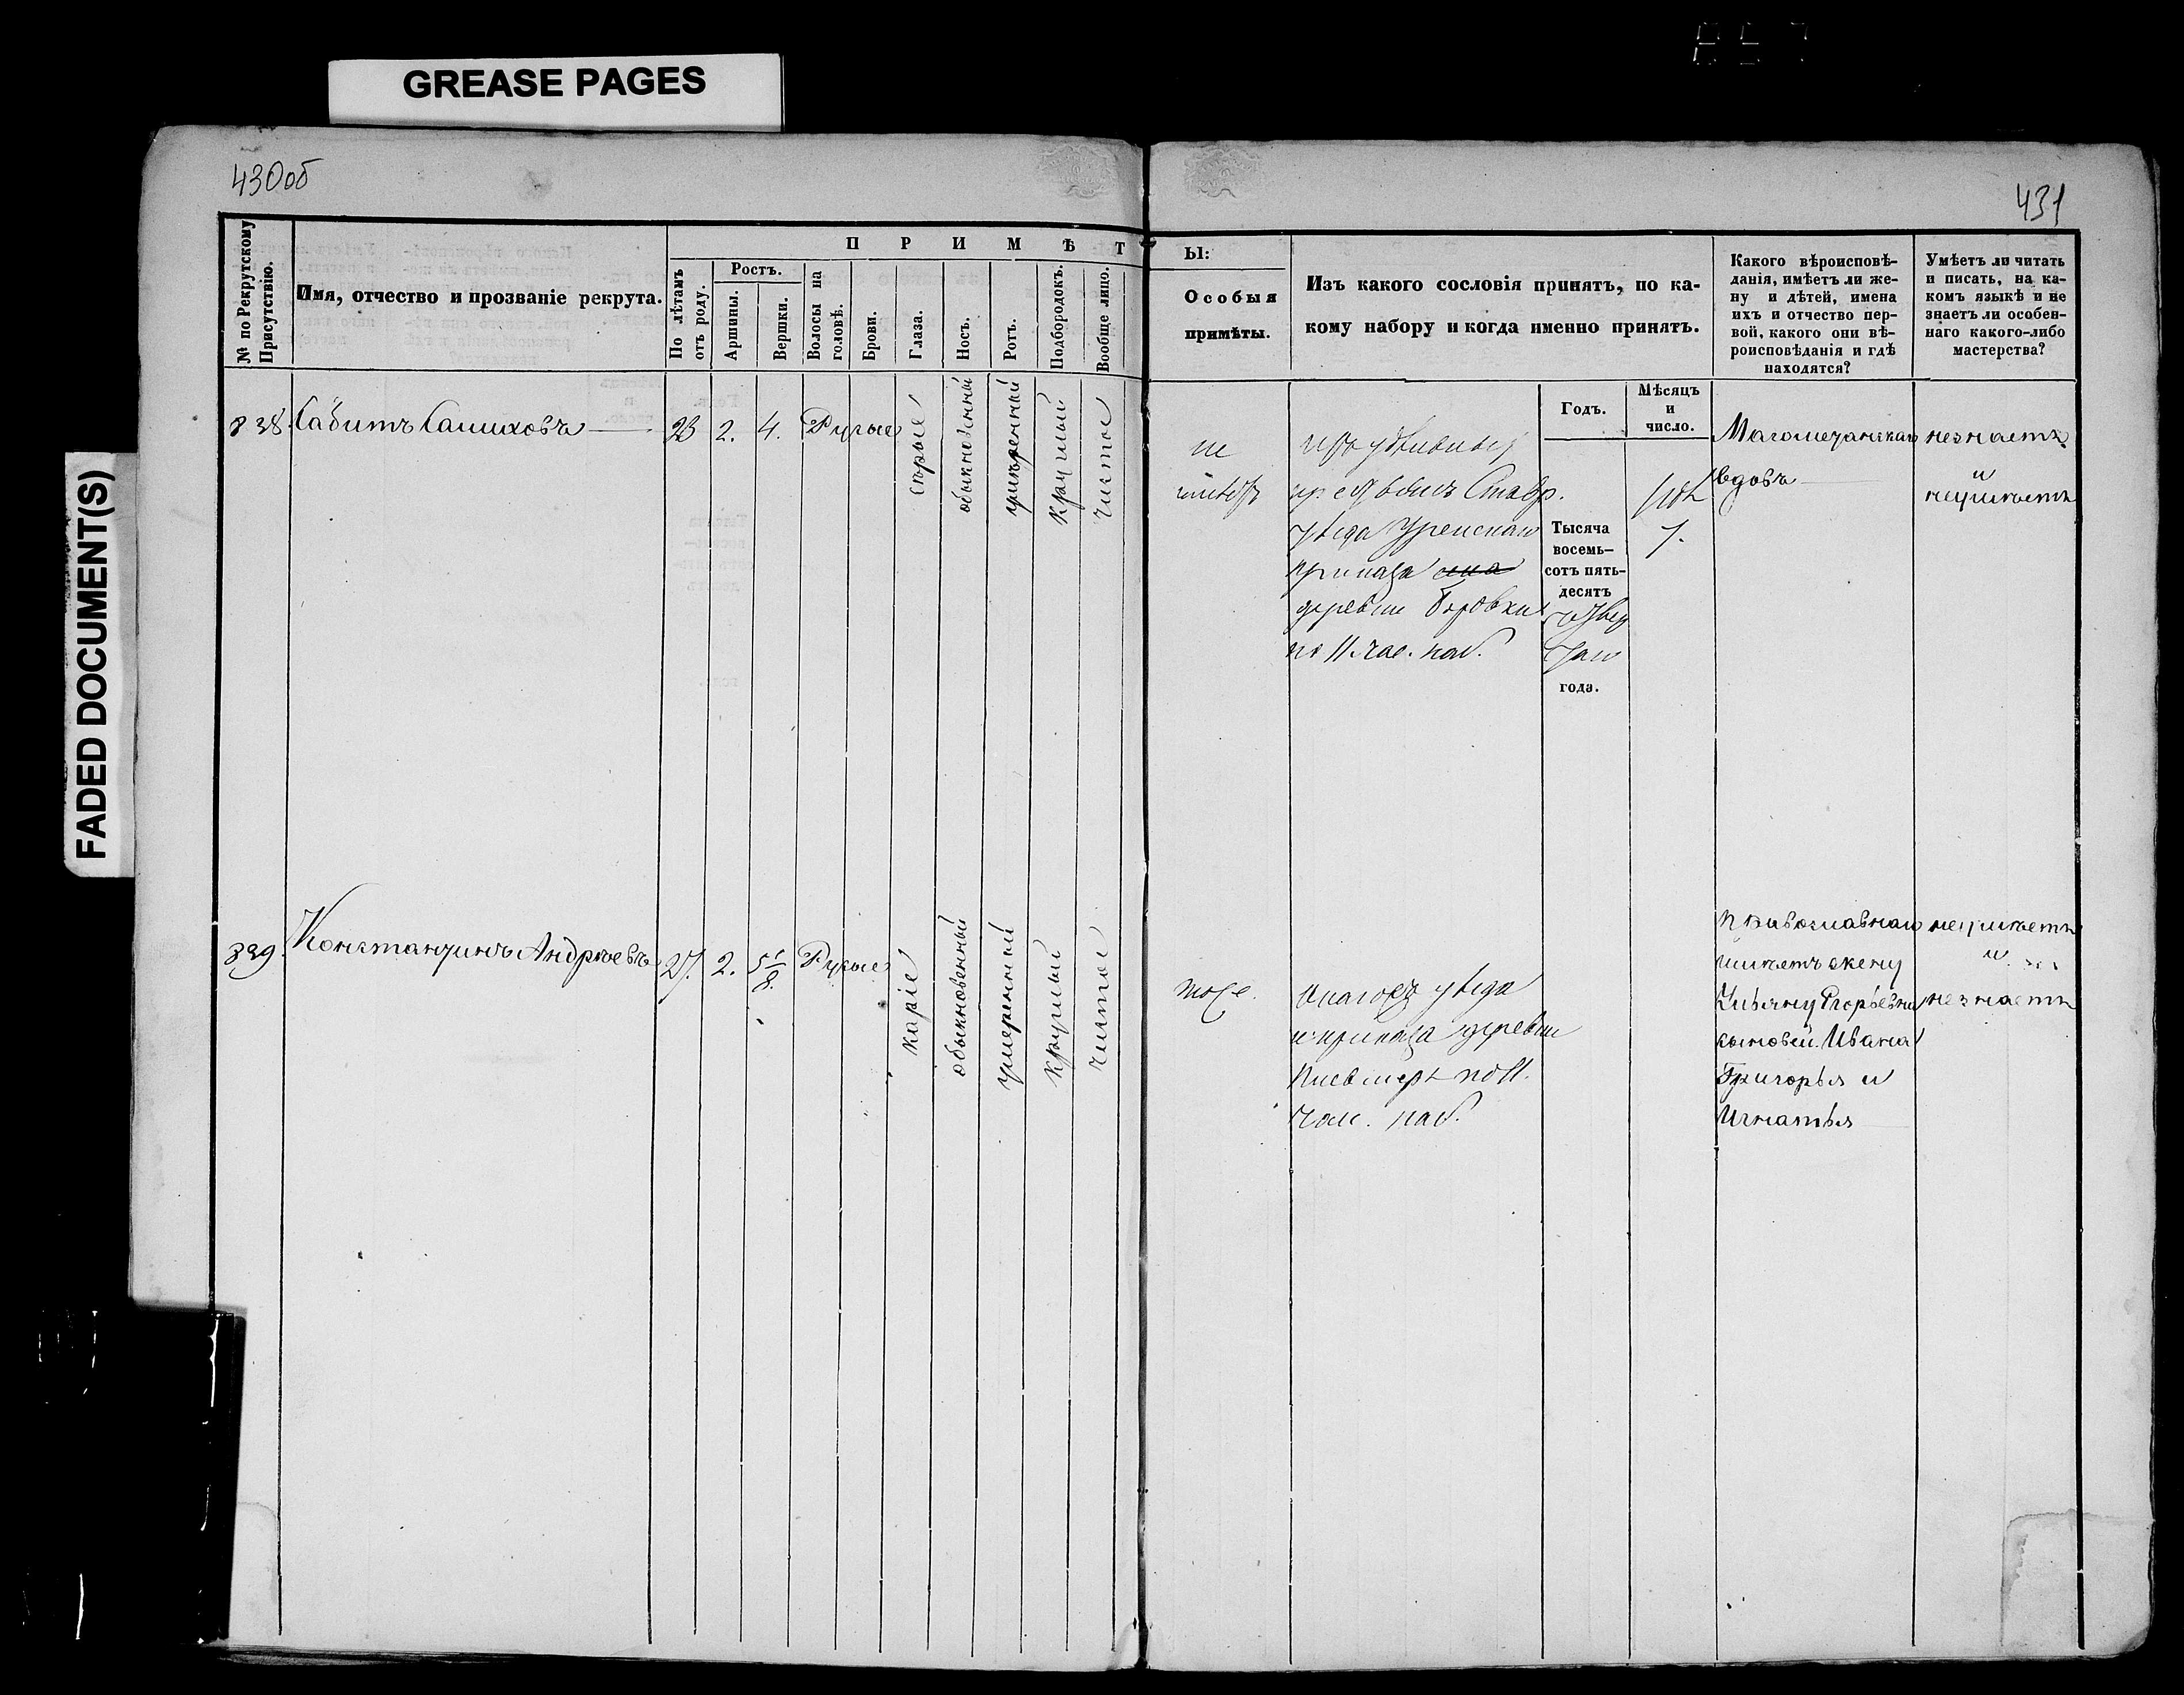 GREASE PAGES
FADED DOCUMENT(S)
430об
431
№ по Рекрутскому
Присутствію.
Имя, отчество и прозваніе рекрута.
П Р И М Ѣ Т
По лѣтамъ
отъ роду.
Ростъ.
Аршины.
Вершки.
Волосы на
головѣ.
Брови.
Глаза.
Носъ.
Ротъ.
Подбородокъ.
Вообще лицо.
Ы:
Особыя
примѣты.
Изъ какого сословія принятъ, по ка-
кому набору и когда именно принятъ.
Какого вѣроисповѣ-
данія, имѣетъ ли же-
ну и дѣтей, имена
ихъ и отчество пер-
вой, какого они вѣ-
роисповѣданія и гдѣ
находятся?
Умѣетъ ли читать
и писать, на ка-
комъ языкѣ и не
знаетъ ли особен-
наго какого-либо
мастерства?
Годъ.
Мѣсяцъ
и
число.
838.
Сабитъ Салиховъ
23
2.
4.
Русые
сѣрые
обыкновенный
умѣренный
круглый
чистое
не
имѣетъ
Став.
уѣзда
приказа
деревни Боровки
по 11. час. наб.
Тысяча
восемь-
сотъ пять-
десятъ
года.
7.
Магометанская
вдовъ
незнаетъ
и
неумѣетъ
839.
Константинъ Андрѣевъ
27.
2.
5 1/8
Русые
каріе
обыкновенный
умеренный
круглый
чистое
тоже.
уѣзда
и приказа деревни
по 11.
час. наб.
Православная
имѣетъ жену
Ульяну Егорьевну
сыновей. Ивана
Григорья и
Игнатья
неумѣетъ
и
незнаетъ